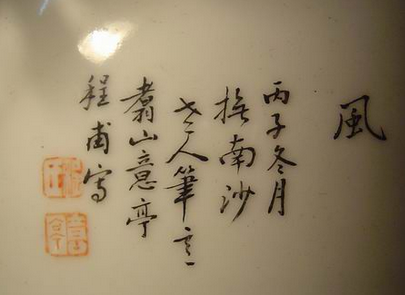 風
丙子冬月
撫南沙
老人筆意
翥山意亭
程甫寫